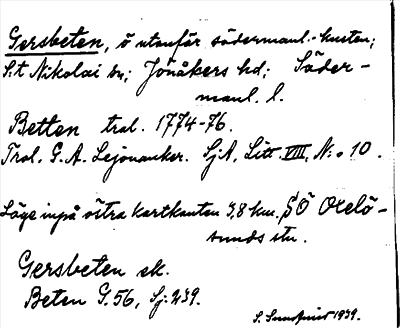 Gersbeten, ö utanför södermanl.-kusten;
S:t Nikolai sn; Jönåkers hd; Söder-
manl. l.
Betten tral. 1774-76.
Tral. G. A. Lejonanker. SjA, Litt. VIII, N:o 10.
Läge inpå östra kartkanten 3,8 km. SÖ Oxelö-
sunds stn.
Gersbeten ek.
Beten G. 56, Sj: 239.
S. Sundqvist 1939.